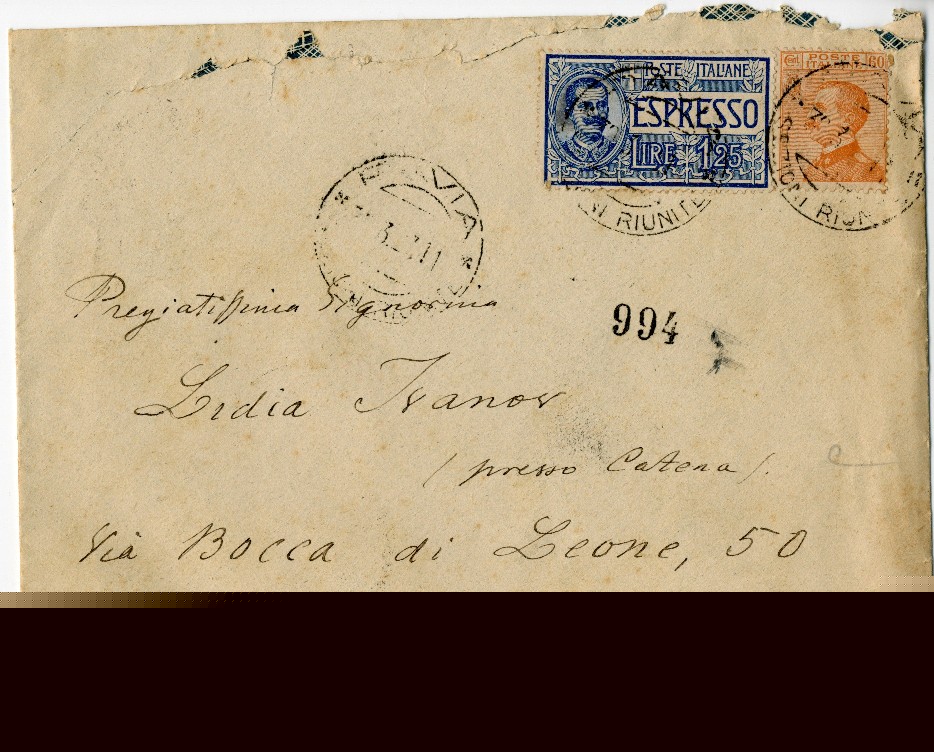 POSTE ITALIANE
ESPRESSO
LIRE 1,25
POSTE ITALIANE 60
RIUNITE
PAVIA
Pregiatissima Signorina
994
Lidia Ivanov
(presso Catena).
Via Bocca di Leone, 50